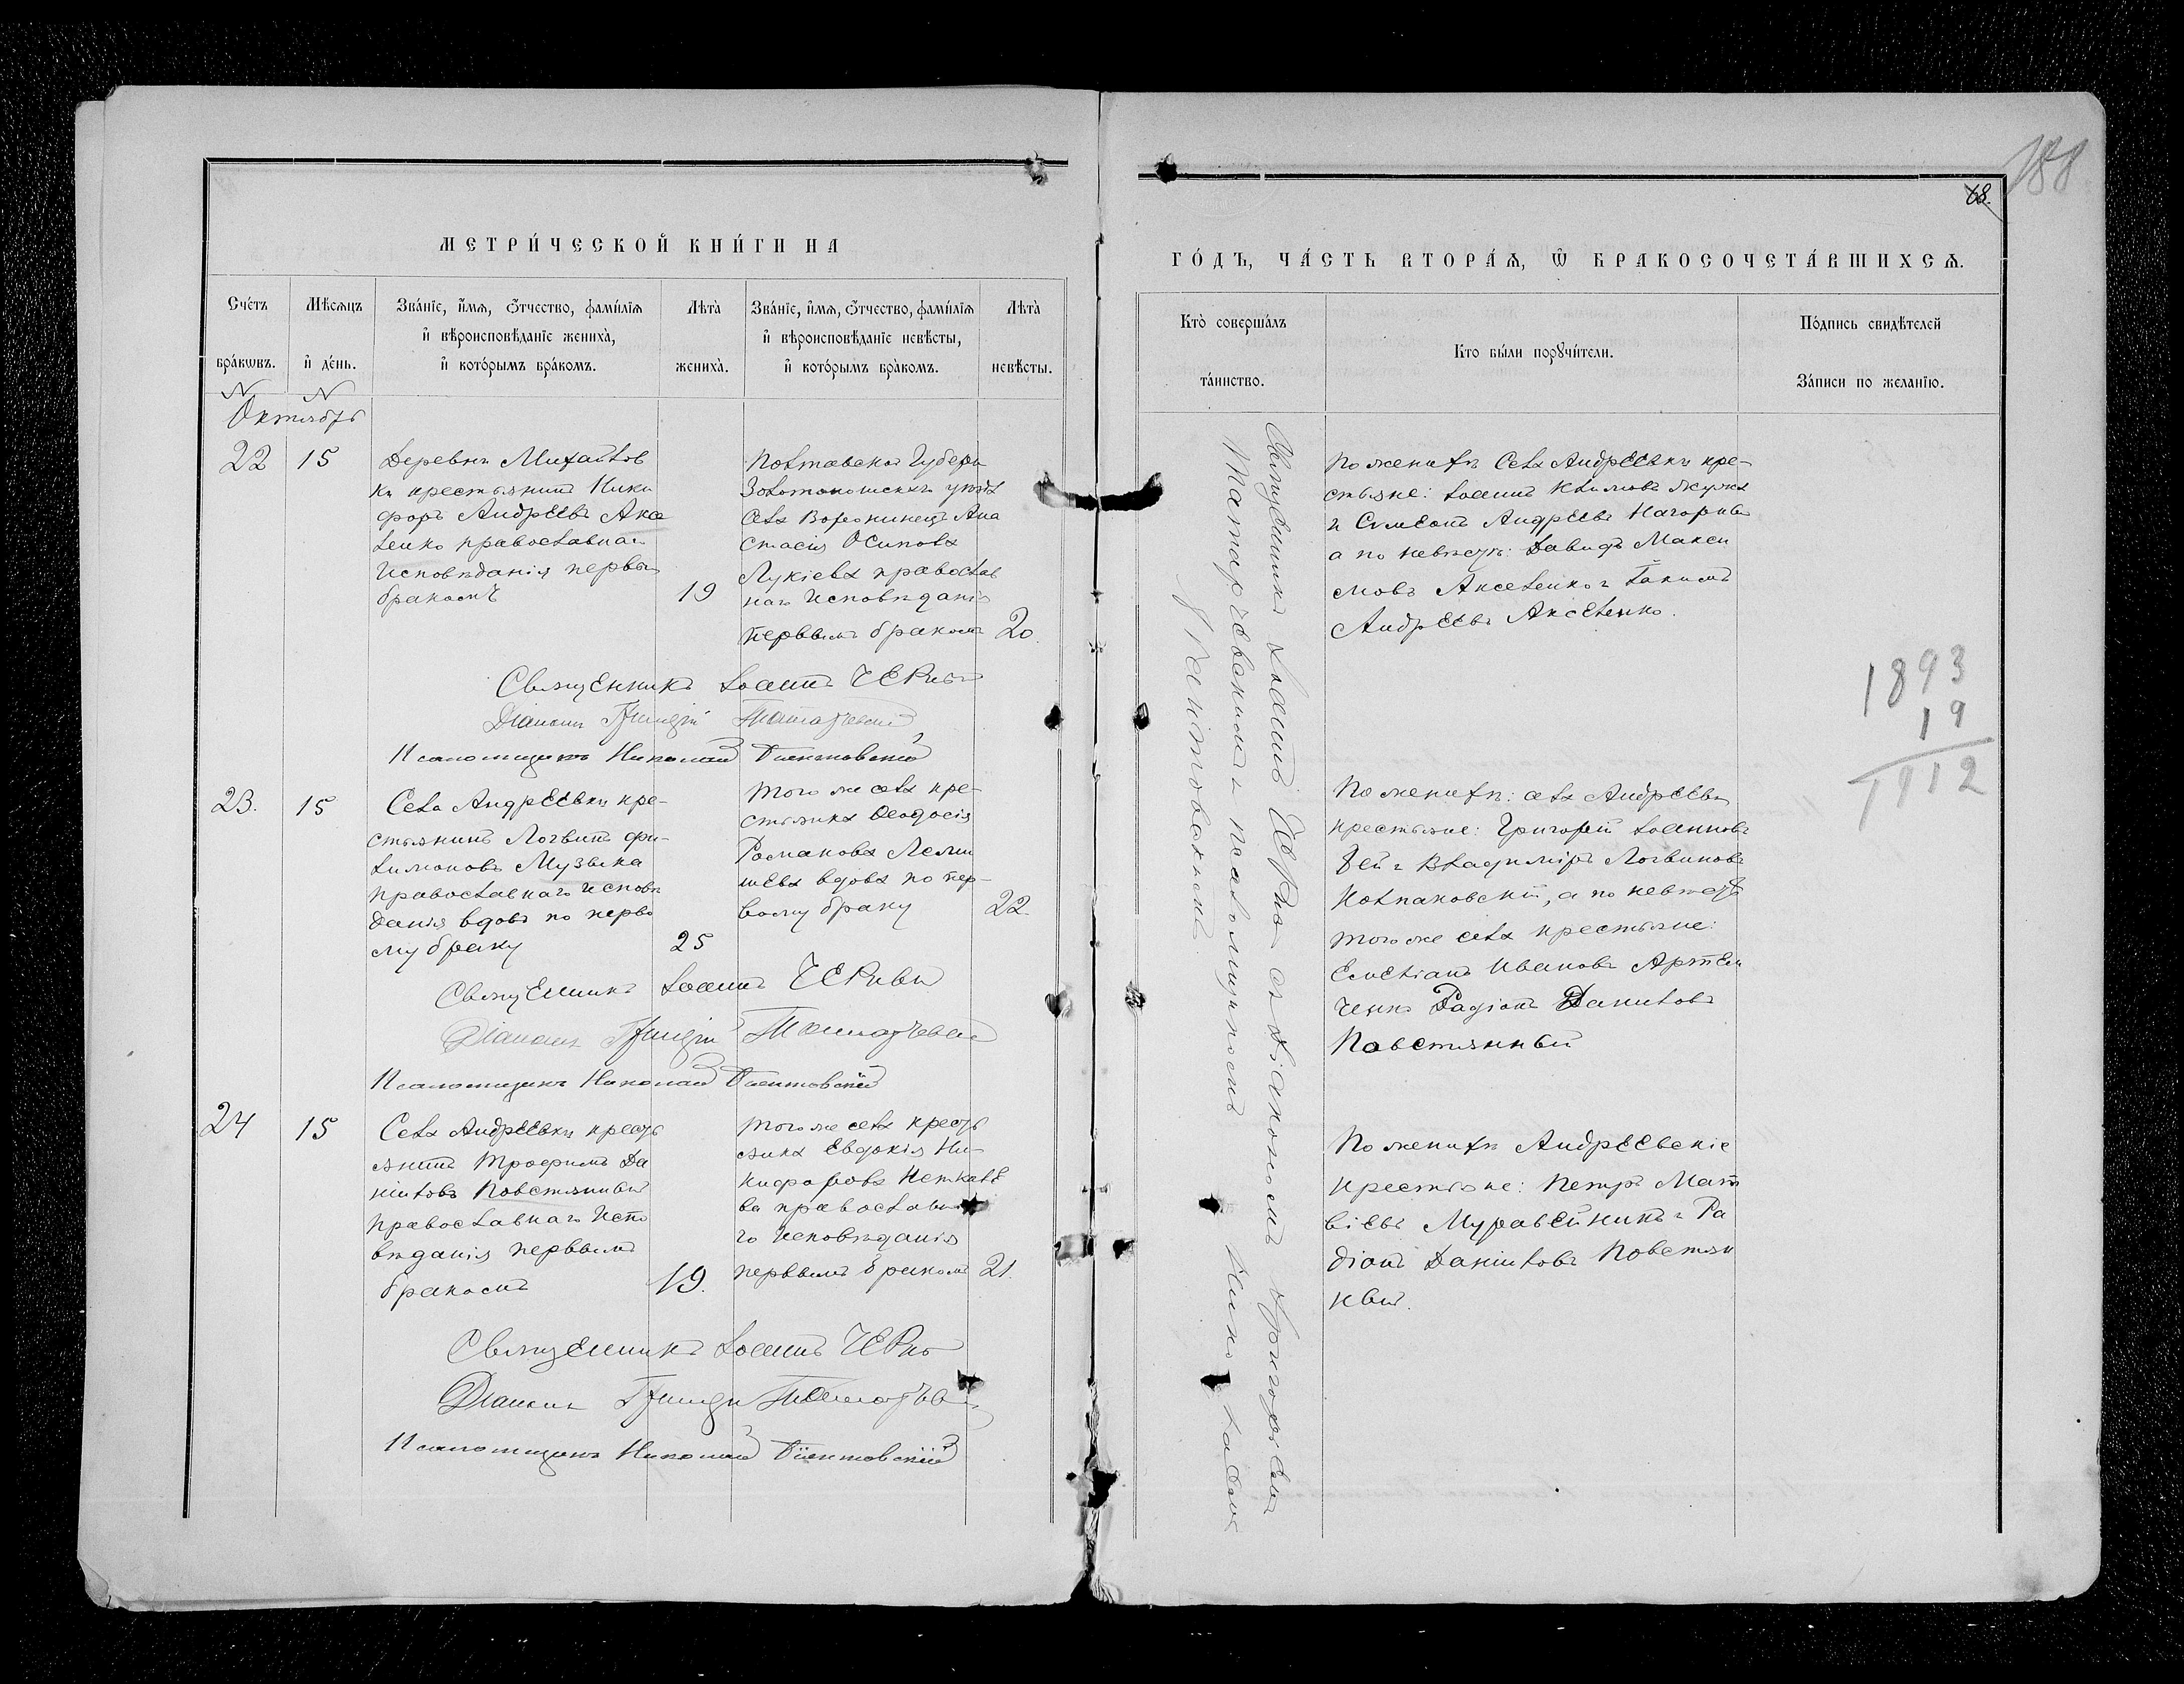 МЕТРИ́ЧЕСКОЙ КНИ́ГИ НА
Сче́тъ бра́кѡвъ.
Мѣ́сяцъ и҆ де́нь.
Зва́нїе, и҆́мѧ, ѻ҆́тчество, фамѝлїѧ
и҆ вѣроисповѣ́данїе жениха̀,
и҆ кото́рымъ бра́комъ.
Лѣта̀ жениха̀.
Зва́нїе, и҆́мѧ, ѻ҆́тчество, фамѝлїѧ
и҆ вѣроисповѣ́данїе невѣ́сты,
и҆ кото́рымъ бра́комъ.
Лѣта̀ невѣ́сты.
Октябрь
22
15
Деревни Михайлов
ки крестьянинъ Ники
форъ Андреевъ Аксе
ленко православнаго
исповѣданія первым
бракомъ
19
Полтавской Губерн
Золотоношскаго уѣзда
села Воронинецъ Ана
стасія Осипова
Лукіева православ
наго исповѣданія
первымъ бракомъ
20.
Священникъ Іоаннъ
Діаконъ
Псаломщикъ Николай
23.
15
Села Андреевки кре-
стьянинъ Логвинъ Фи-
лимоновъ Музыка
православнаго исповѣ
данія вдовъ по перво
му браку
25
Того же села кре-
стьянка Ѳеодосія
Романова
вдова по пер-
вому браку
22.
Священникъ Іоаннъ
Діаконъ
Псаломщикъ Николай
24
15
Села Андреевки кресть
янинъ Трофимъ Да
ниловъ Повстянный
православнаго испо
вѣданія первымъ
бракомъ
19.
Того же села кресть
янка Евдокія Ни-
кифорова
ва православна
го исповѣданія
первымъ бракомъ
21.
Священникъ Іоаннъ
Діаконъ
Псаломщикъ Николай
188
68.
ГО́ДЪ, ЧА́СТЬ ВТОРА́Ѧ, Ѡ҆ БРАКОСОЧЕТА́ВШИХСѦ.
Кто̀ соверша́лъ
та́инство.
Кто бы́ли порꙋчи́тели.
По́дпись свидѣ́телей
За́писи по жела́нїю.
Священникъ Іоаннъ съ діакономъ Григоріемъ
и псаломщикомъ Николаемъ
По женихѣ Села Андреевки кре-
стьяне: Іоаннъ Климовъ
и Симеонъ Андреевъ
а по невѣстѣ: Давидъ Макси
мовъ Акселенко и Іакимъ
Андреевъ Акселенко.
1893
19
1912
По женихѣ: села Андреевки
крестьяне: Григорій Іоанновъ
и Владиміръ Логвиновъ
Колпаковскій, а по невѣстѣ
того же села крестьяне:
Емеліанъ Ивановъ Артем
ченко Радіонъ Даниловъ
Повстянный
По женихѣ Андреевскіе
крестьяне: Петръ Мат
віевъ Муравейникъ и Ра
діонъ Даниловъ Повстян
ный.